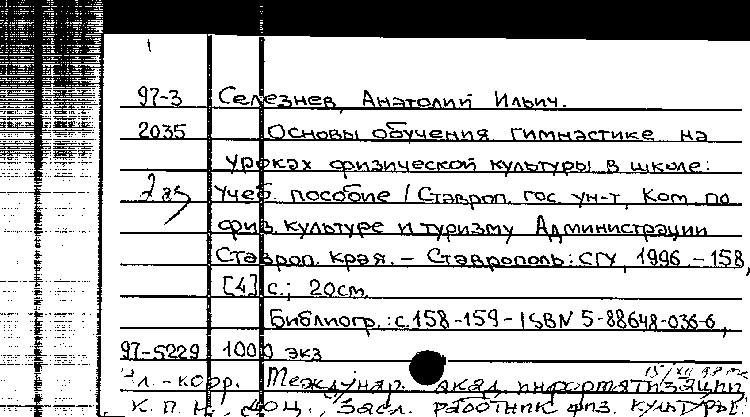 97-3 Селезнев, Анатолий Ильич.
2035 Основы обучения гимнастике на
уроках физической культуры в школе:
2 экз Учеб. пособие / Ставроп. гос. ун-т, Ком. по
физ. культуре и туризму Администрации
Ставроп. края. – Ставрополь: СГУ, 1996. – 158,
[4] с.; 20см.
Библиогр.: с. 158-159 – ISBN 5-88648-036-6,
97-5229 1000 экз
Чл.-корр. Междунар. акад. информатизации,
к. п. н., доц., Засл. работник физ. культуры,